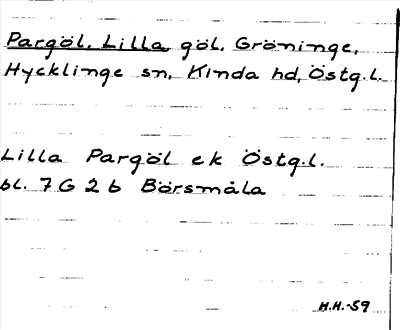 Pargöl, Lilla göl, Gröninge,
Hycklinge sn, Kinda hd, Östg.l.
Lilla Pargöl ek Östg.l.
bl. 7 G 2 b Börsmåla
H.H.-59